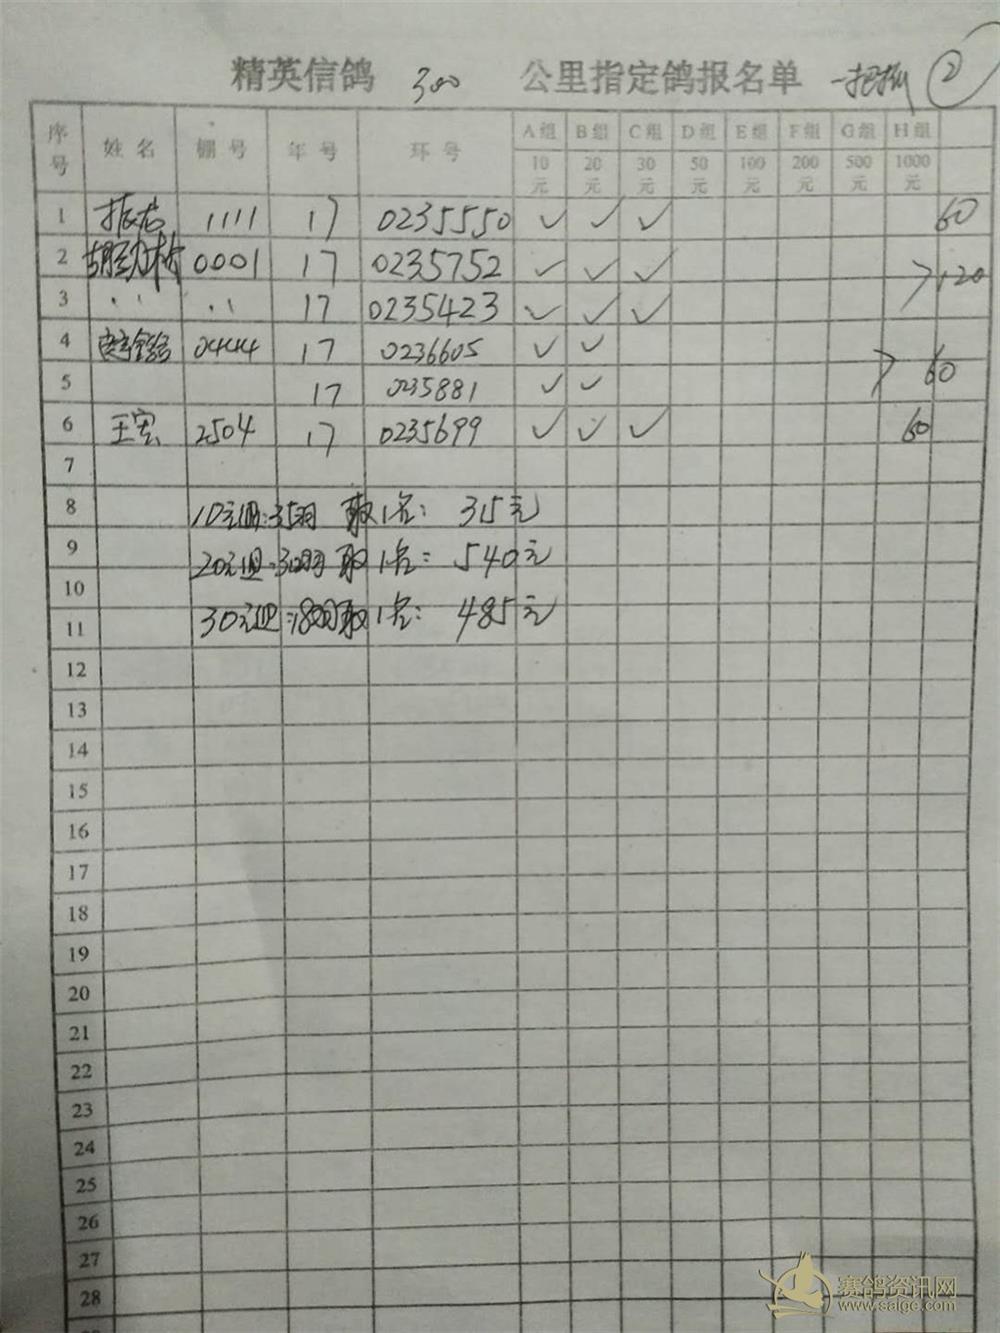 精英信鸽 300 公里指定鸽报名单 一把抓 ②
序号 姓名 棚号 年号 环号 A组 B组 C组 D组 E组 F组 G组 H组
10元 20元 30元 50元 100元 200元 500元 1000元
1 1111 17 0235550 ✓ ✓ ✓ 60
2 0001 17 0235752 ✓ ✓ ✓
120
3 〃 〃 17 0235423 ✓ ✓ ✓
4 0444 17 0236605 ✓ ✓
60
5 17 0235881 ✓ ✓
6 王宏 2504 17 0235699 ✓ ✓ ✓ 60
7
8 10元组:35羽 取1名: 315元
9 20元组:30羽 取1名: 540元
10
11 30元组:18羽 取1名: 485元
12
13
14
15
16
17
18
19
20
21
22
23
24
25
26
27
28
赛鸽资讯网
www.saige.com